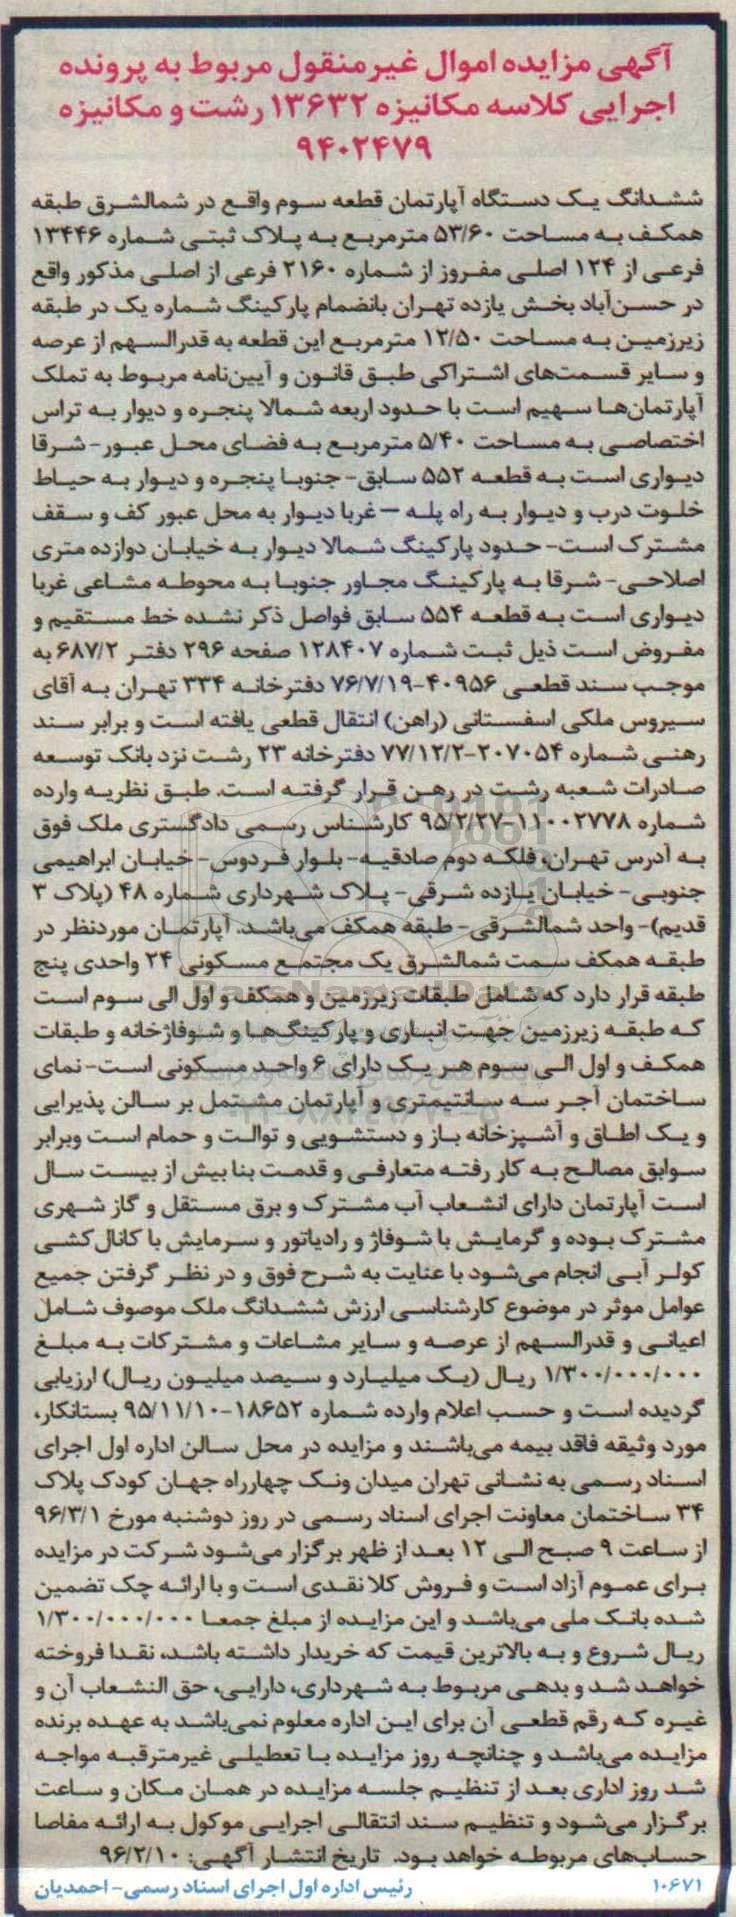 آگهی مزایده اموال غیرمنقول مربوط به پرونده
اجرایی کلاسه مکانیزه ۱۳۶۳۲ رشت و مکانیزه
۹۴۰۲۴۷۹
ششدانگ یک دستگاه آپارتمان قطعه سوم واقع در شمالشرق طبقه
همکف به مساحت ۵۳/۶۰ مترمربع به پلاک ثبتی شماره ۱۳۴۴۶
فرعی از ۱۲۴ اصلی مفروز از شماره ۲۱۶۰ فرعی از اصلی مذکور واقع
در حسن‌آباد بخش یازده تهران بانضمام پارکینگ شماره یک در طبقه
زیرزمین به مساحت ۱۲/۵۰ مترمربع این قطعه به قدرالسهم از عرصه
و سایر قسمت‌های اشتراکی طبق قانون و آیین‌نامه مربوط به تملک
آپارتمان‌ها سهیم است با حدود اربعه شمالا پنجره و دیوار به تراس
اختصاصی به مساحت ۵/۴۰ مترمربع به فضای محل عبور- شرقا
دیواری است به قطعه ۵۵۲ سابق- جنوبا پنجره و دیوار به حیاط
خلوت درب و دیوار به راه پله – غربا دیوار به محل عبور کف و سقف
مشترک است- حدود پارکینگ شمالا دیوار به خیابان دوازده متری
اصلاحی- شرقا به پارکینگ مجاور جنوبا به محوطه مشاعی غربا
دیواری است به قطعه ۵۵۴ سابق فواصل ذکر نشده خط مستقیم و
مفروض است ذیل ثبت شماره ۱۲۸۴۰۷ صفحه ۲۹۶ دفتر ۶۸۷/۲ به
موجب سند قطعی ۴۰۹۵۶-۷۶/۷/۱۹ دفترخانه ۳۳۴ تهران به آقای
سیروس ملکی اسفستانی (راهن) انتقال قطعی یافته است و برابر سند
رهنی شماره ۲۰۷۰۵۴-۷۷/۱۲/۲ دفترخانه ۲۳ رشت نزد بانک توسعه
صادرات شعبه رشت در رهن قرار گرفته است. طبق نظریه وارده
شماره ۱۱۰۰۲۷۷۸-۹۵/۲/۲۷ کارشناس رسمی دادگستری ملک فوق
به آدرس تهران، فلکه دوم صادقیه- بلوار فردوس- خیابان ابراهیمی
جنوبی- خیابان یازده شرقی- پلاک شهرداری شماره ۴۸ (پلاک ۳
قدیم)- واحد شمالشرقی- طبقه همکف می‌باشد. آپارتمان موردنظر در
طبقه همکف سمت شمالشرق یک مجتمع مسکونی ۲۴ واحدی پنج
طبقه قرار دارد که شامل طبقات زیرزمین و همکف و اول الی سوم است
که طبقه زیرزمین جهت انباری و پارکینگ‌ها و شوفاژخانه و طبقات
همکف و اول الی سوم هر یک دارای ۶ واحد مسکونی است- نمای
ساختمان آجر سه سانتیمتری و آپارتمان مشتمل بر سالن پذیرایی
و یک اطاق و آشپزخانه باز و دستشویی و توالت و حمام است وبرابر
سوابق مصالح به کار رفته متعارفی و قدمت بنا بیش از بیست سال
است آپارتمان دارای انشعاب آب مشترک و برق مستقل و گاز شهری
مشترک بوده و گرمایش با شوفاژ و رادیاتور و سرمایش با کانال‌کشی
کولر آبی انجام می‌شود با عنایت به شرح فوق و در نظر گرفتن جمیع
عوامل موثر در موضوع کارشناسی ارزش ششدانگ ملک موصوف شامل
اعیانی و قدرالسهم از عرصه و سایر مشاعات و مشترکات به مبلغ
۱/۳۰۰/۰۰۰/۰۰۰ ریال (یک میلیارد و سیصد میلیون ریال) ارزیابی
گردیده است و حسب اعلام وارده شماره ۱۸۶۵۲-۹۵/۱۱/۱۰ بستانکار،
مورد وثیقه فاقد بیمه می‌باشند و مزایده در محل سالن اداره اول اجرای
اسناد رسمی به نشانی تهران میدان ونک چهارراه جهان کودک پلاک
۳۴ ساختمان معاونت اجرای اسناد رسمی در روز دوشنبه مورخ ۹۶/۳/۱
از ساعت ۹ صبح الی ۱۲ بعد از ظهر برگزار می‌شود شرکت در مزایده
برای عموم آزاد است و فروش کلا نقدی است و با ارائه چک تضمین
شده بانک ملی می‌باشد و این مزایده از مبلغ جمعا ۱/۳۰۰/۰۰۰/۰۰۰
ریال شروع و به بالاترین قیمت که خریدار داشته باشد، نقدا فروخته
خواهد شد و بدهی مربوط به شهرداری، دارایی، حق النشعاب آن و
غیره که رقم قطعی آن برای این اداره معلوم نمی‌باشد به عهده برنده
مزایده می‌باشد و چنانچه روز مزایده با تعطیلی غیرمترقبه مواجه
شد روز اداری بعد از تنظیم جلسه مزایده در همان مکان و ساعت
برگزار می‌شود و تنظیم سند انتقالی اجرایی موکول به ارائه مفاصا
حساب‌های مربوطه خواهد بود. تاریخ انتشار آگهی: ۹۶/۲/۱۰
۱۰۶۷۱ رئیس اداره اول اجرای اسناد رسمی- احمدیان
ParsNamadData